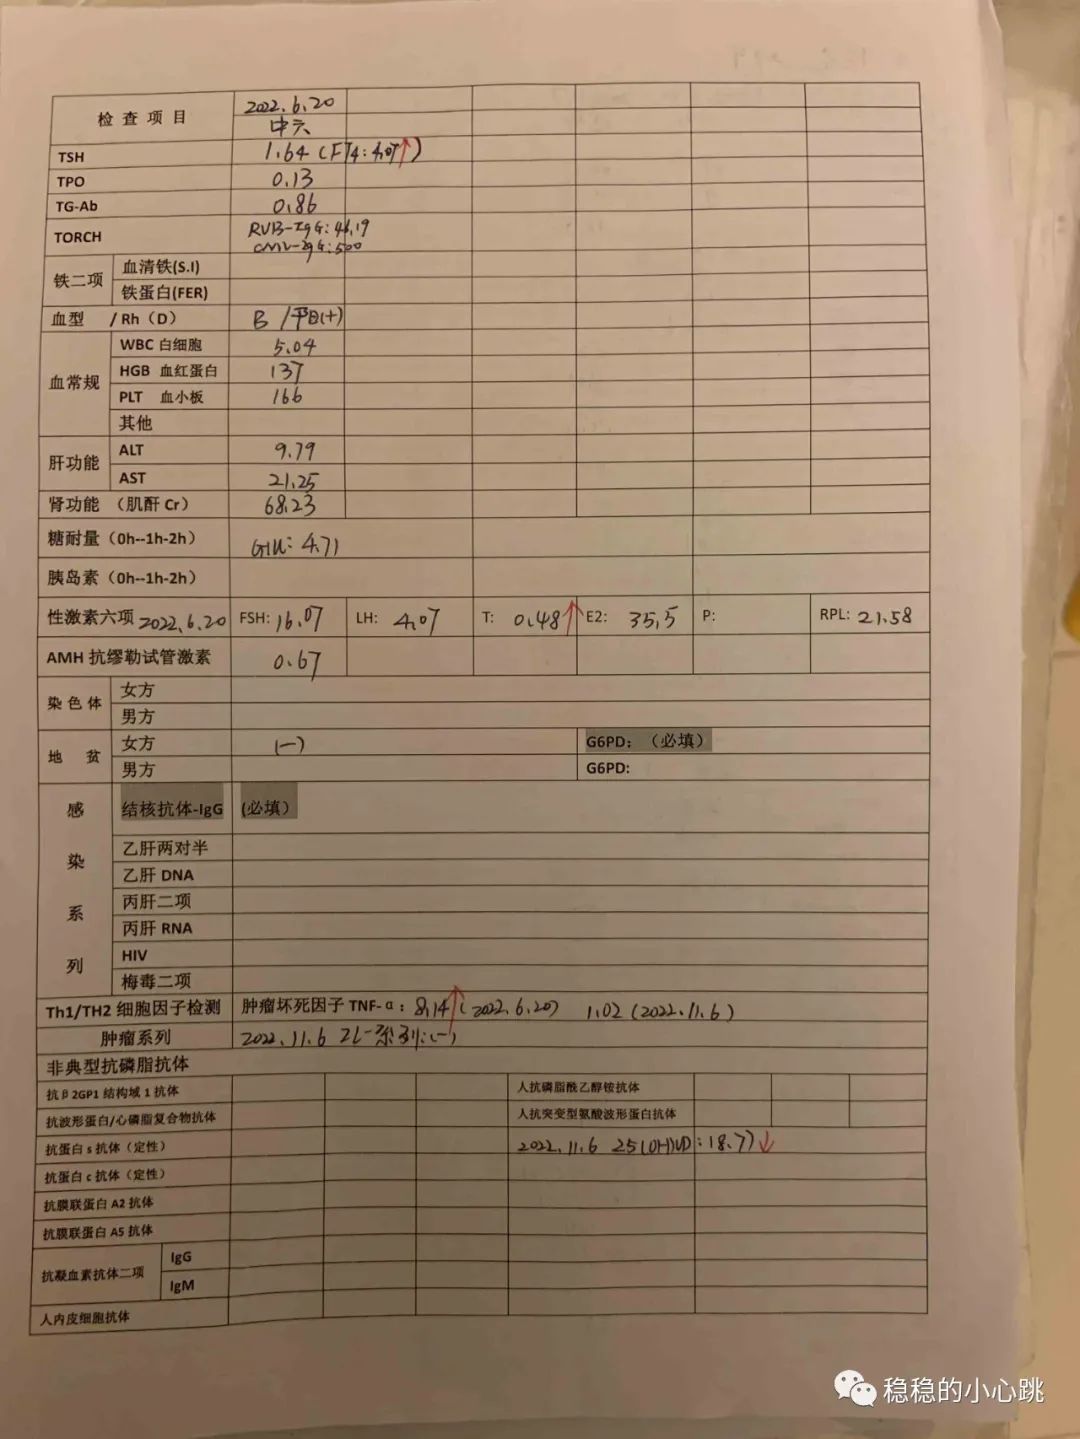 检查项目 2022.6.20
中六
TSH 1.64 (FT4: 4.07↑)
TPO 0.13
TG-Ab 0.86
TORCH RVB-IgG: 46.19
CMV-IgG: 500
铁二项 血清铁(S.I)
铁蛋白(FER)
血型 /Rh（D） B /阳(+)
血常规 WBC 白细胞 5.04
HGB 血红蛋白 137
PLT 血小板 166
其他
肝功能 ALT 9.79
AST 21.25
肾功能 （肌酐 Cr） 68.23
糖耐量（0h--1h-2h） Glu: 4.71
胰岛素（0h--1h-2h）
性激素六项 2022.6.20 FSH: 16.07 LH: 4.07 T: 0.48↑ E2: 35.5 P: RPL: 21.58
AMH 抗缪勒试管激素 0.67
染色体 女方
男方
地 贫 女方 (一) G6PD：（必填）
男方 G6PD:
感染系列 结核抗体-IgG (必填）
乙肝两对半
乙肝 DNA
丙肝二项
丙肝 RNA
HIV
梅毒二项
Th1/TH2 细胞因子检测 肿瘤坏死因子 TNF-α：8.14↑(2022.6.20) 1.02 (2022.11.6)
肿瘤系列 2022.11.6 系列:(-)
非典型抗磷脂抗体
抗β2GP1 结构域 1 抗体 人抗磷脂酰乙醇铵抗体
抗波形蛋白/心磷脂复合物抗体 人抗突变型氨酸波形蛋白抗体
抗蛋白 s 抗体（定性） 2022.11.6 25(OH)VD: 18.77↓
抗蛋白 c 抗体（定性）
抗膜联蛋白 A2 抗体
抗膜联蛋白 A5 抗体
抗凝血素抗体二项 IgG
IgM
人内皮细胞抗体
稳稳的小心跳